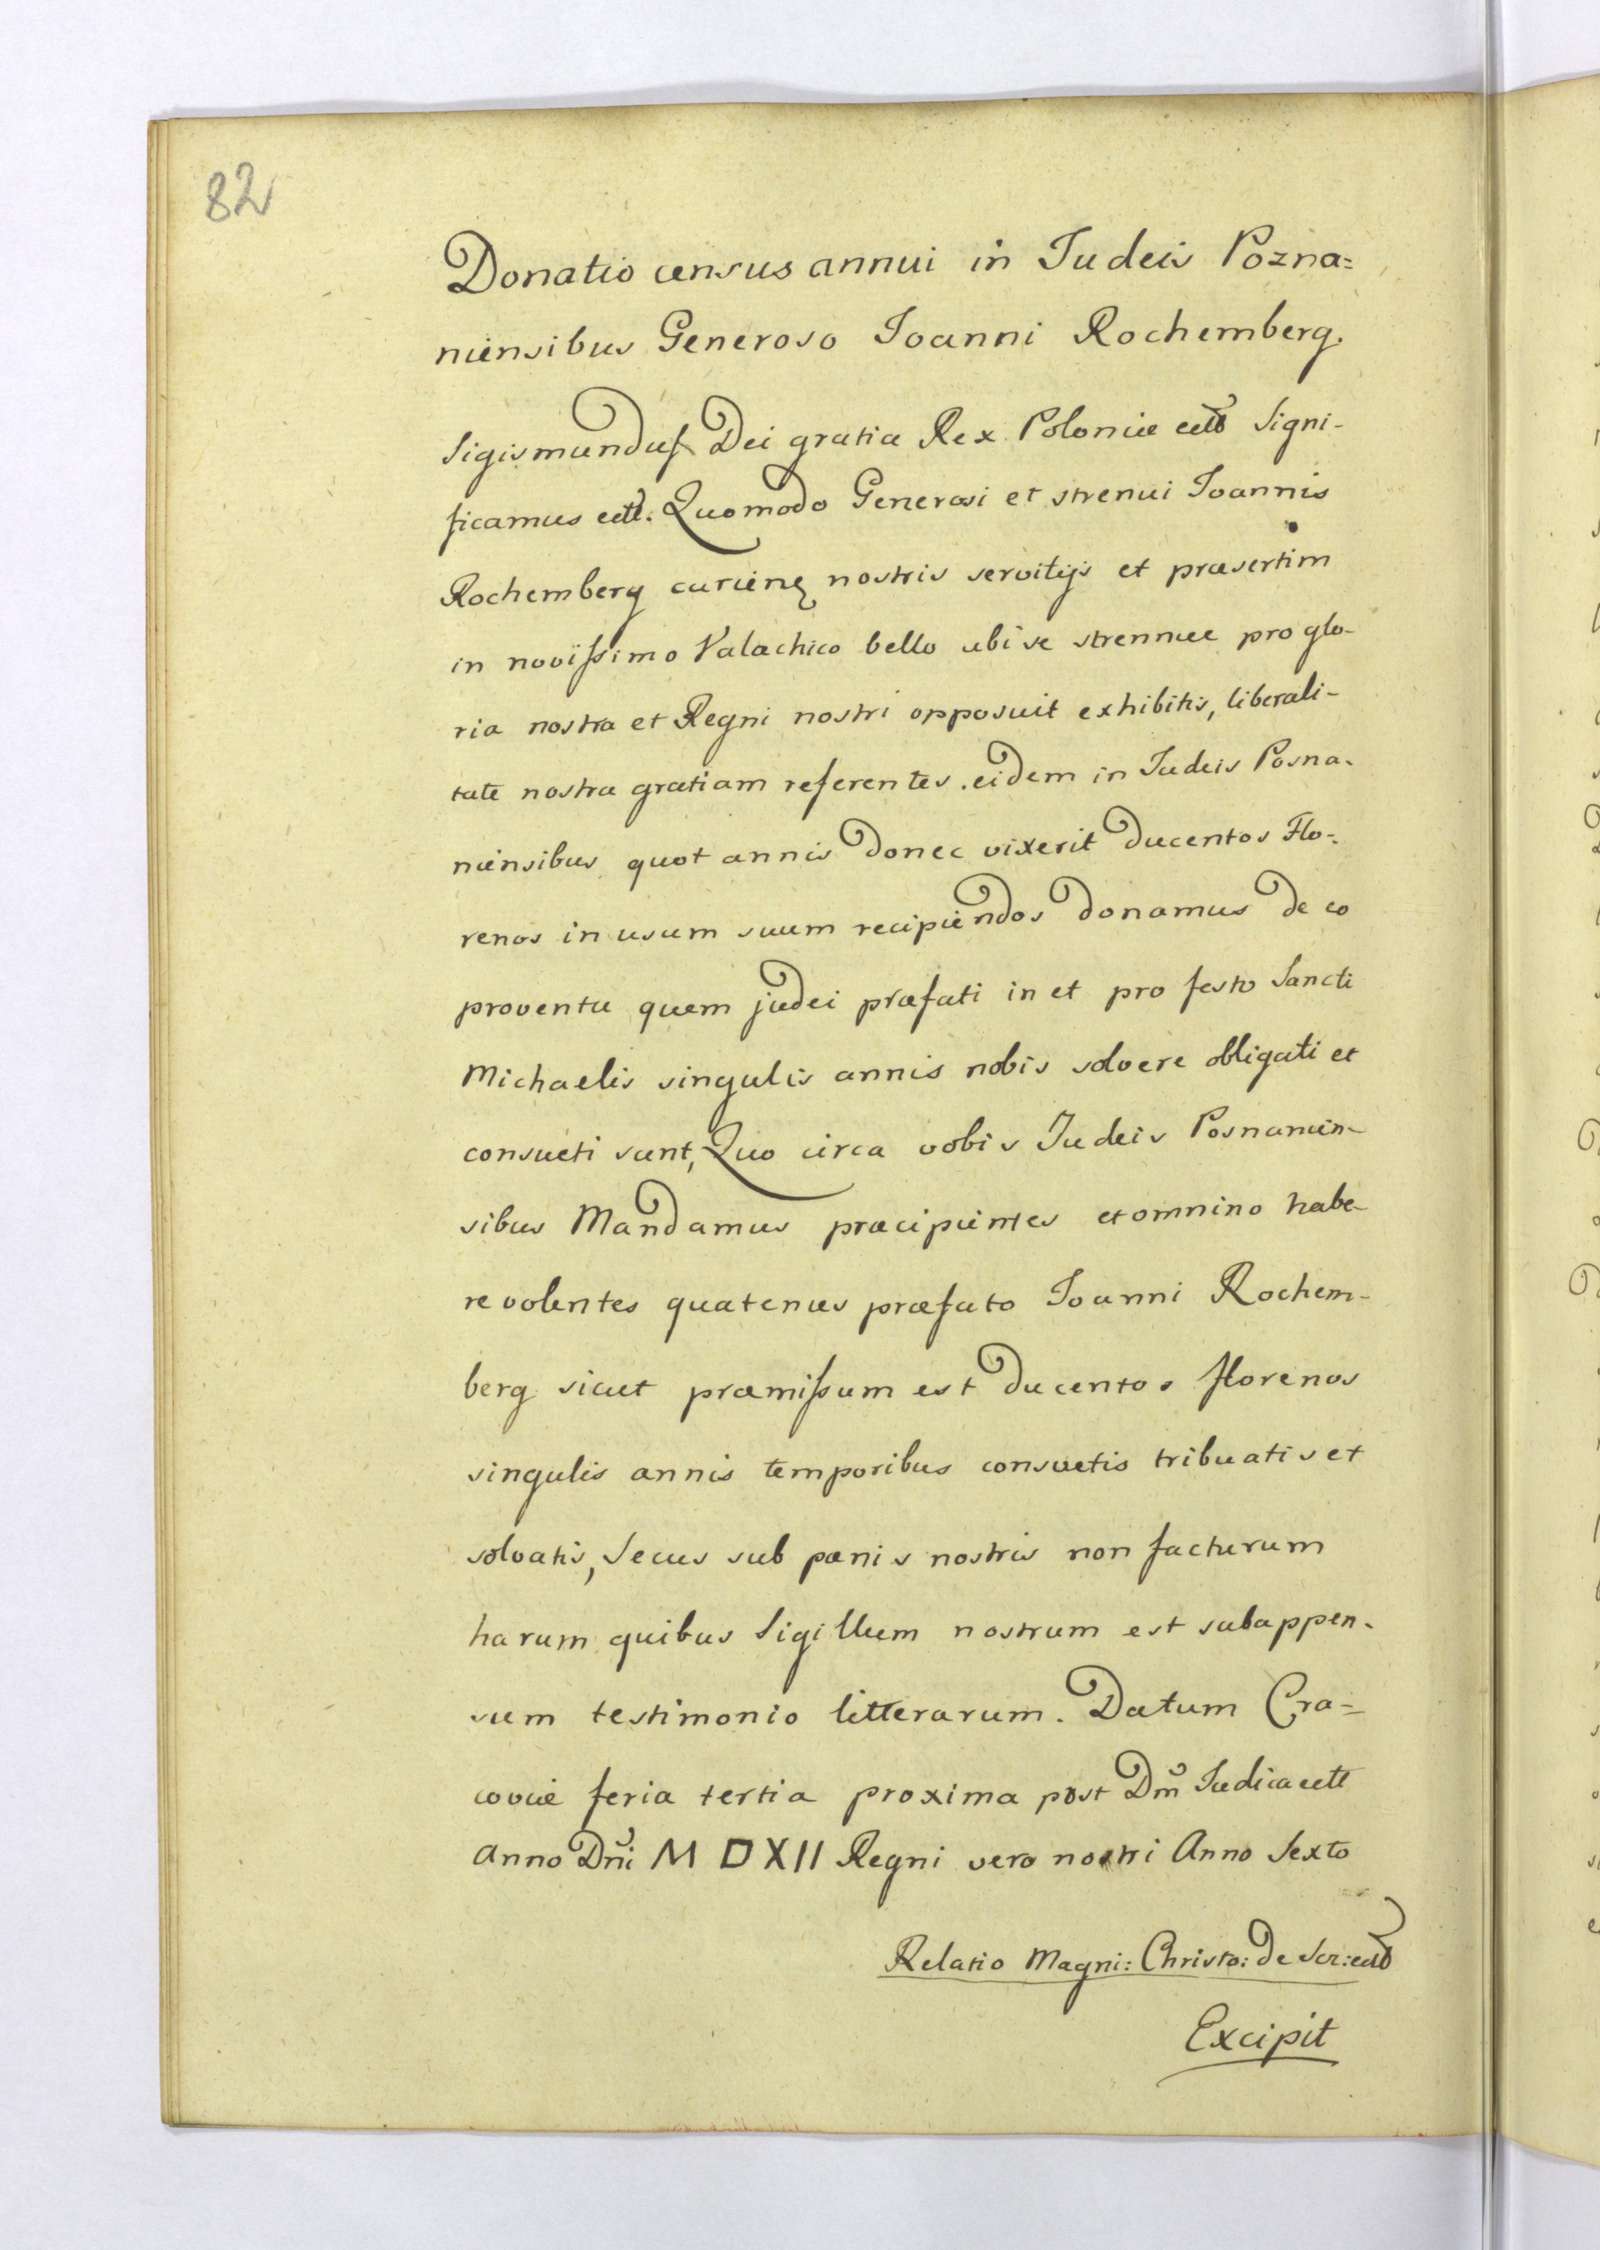 82
Donatio census annui in Judeis Pozna=
niensibus Generoso Joanni Rochemberg.
Sigismundus Dei gratia Rex Poloniæ etc Signi-
ficamus etc. Quomodo Generosi et strenui Joannis
Rochemberg curienȩ nostris servitijs et præsertim
in novissimo Valachico bello ubi se strennue pro glo-
ria nostra et Regni nostri opposuit exhibitis, liberali-
tate nostra gratiam referentes. eidem in Judeis Posna-
niensibus quot annis donec vixerit ducentos Flo-
renos in usum suum recipiendos donamus de eo
proventu quem judei præfati in et pro festo Sancti
Michaelis singulis annis nobis solvere obligati et
consueti sunt, Quo circa vobis Judeis Posnanien-
sibus Mandamus præcipientes et omnino habe-
re volentes quatenus præfato Joanni Rochem-
berg sicut præmissum est ducentos florenos
singulis annis temporibus consuetis tribuatis et
solvatis, Secus sub pænis nostris non facturum
harum quibus Sigillum nostrum est subappen-
sum testimonio litterarum. Datum Cra=
coviæ feria tertia proxima post Dm̃ Judica etc
Anno Dñi M D XII Regni vero nostri Anno Sexto
Relatio Magni: Christo: de Scz: etc
Excipit